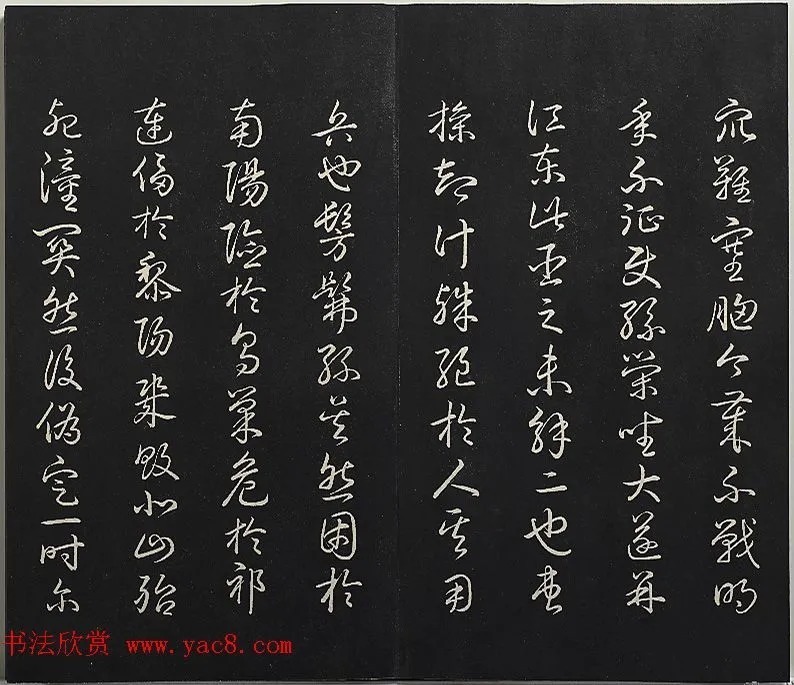 眾難塞胸今歲不戰明
年不征使孫策坐大遂并
江東此臣之未解二也曹
操智計殊絕於人其用
兵也髣髴孫吳然困於
南陽險於烏巢危於祁
連偪於黎陽幾敗北山殆
死潼關然後偽定一時尔
书法欣赏 www.yac8.com